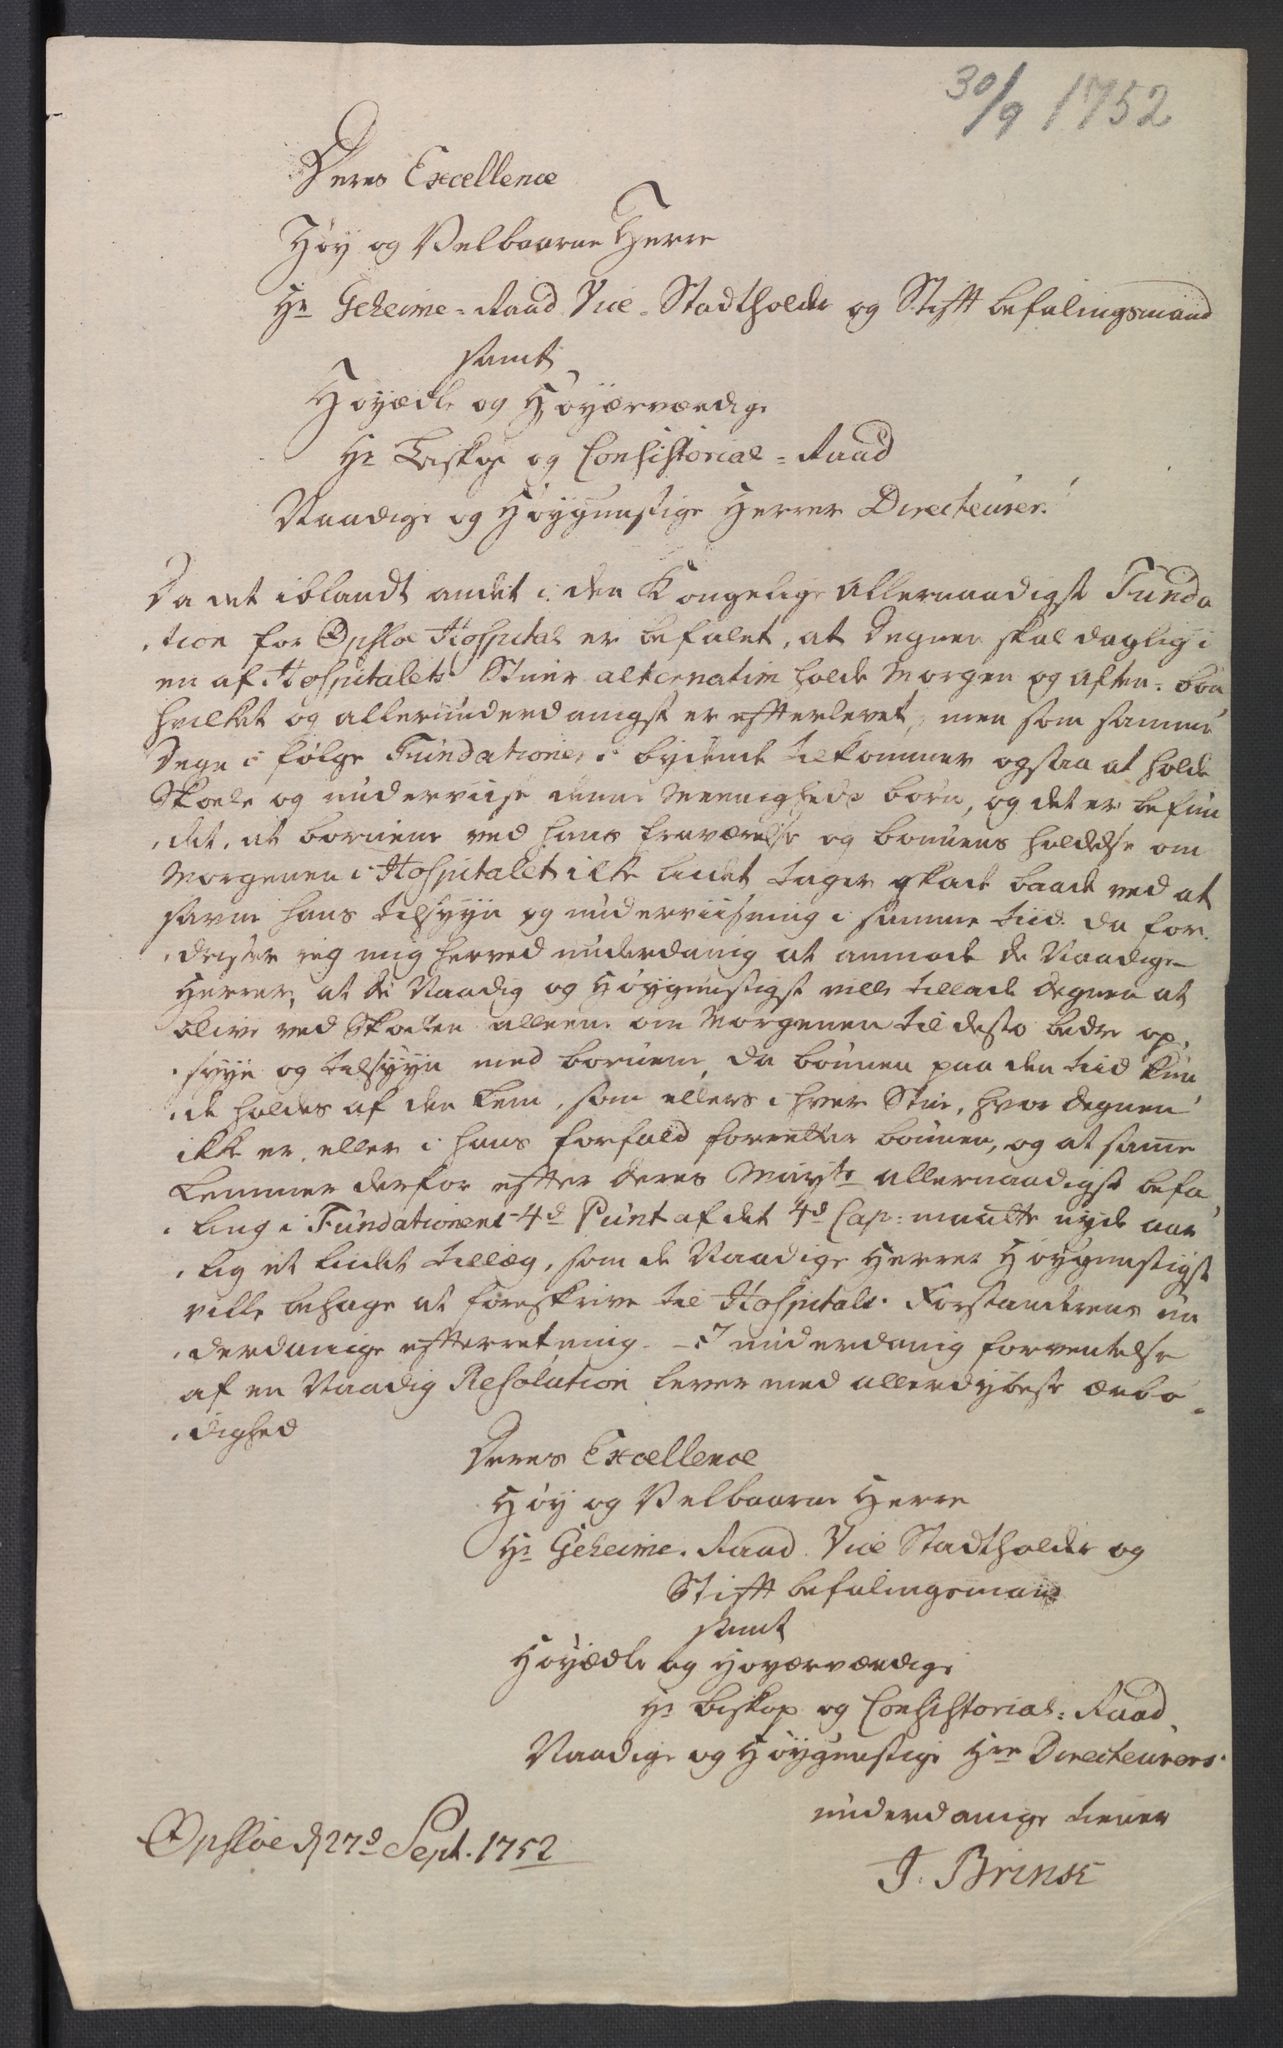 30/9 1752
Deres Excellence
Høy og Velbaarne Herre
Hr Geheime-Raad Vice-Stadtholder og Stifft befalingsmand
samt
Høyædle og Høyærværdige
Hr Biskop og Consistorial-Raad
Naadige og Høygunstige Herrer Directeurer!
Da det iblandt andet i den Kongelige allernaadigst Funda
tion for Opsloe Hospital er befalet, at Degnen skal daglig i
en af Hospitalets Stuer alternatim holde Morgen og Aften-bøn
hvilket og allerunderdanigst er efterlevet, men som samme
Degn i følge Fundationens bydende tilkommer ogsaa at holde
Skoele og underviise denne Meenigheds børn, og det er befun
det, at børnene ved hans fraværelse og bønnens holdelse om
Morgenen i Hospitalet ikke lidet tager skade baade ved at
savne hans tilsyyn og underviisning i samme tiid. da for
drister ieg mig herved underdanig at anmode de Naadige
Herrer, at de Naadig og Høygunstigst ville tillade Degnen at
blive ved Skoelen alleene om Morgenen til desto bedre op
siyn og tilsyyn med børnene, da bønnen paa den tiid kun
de holdes af den Lem, som ellers i hver Stue, hvor Degnen
ikke er, eller i hans forfald forretter bønnen, og at samme
Lemmer derfor efter Deres Mayts allernaadigst befa
ling i Fundationens 4d Punt af det 4d Cap: maatte nyde aar
lig et lidet tillæg, som de Naadige Herrer Høygunstigst
ville behage at foreskrive til Hospitals Forstanderens un
derdanige efterretning. - I underdanig forventelse
af en Naadig Resolution lever med allerdybeste ærbø
dighed
Deres Excellence
Høy og Velbaarne Herre
Hr Geheime-Raad Vice Stadtholder og
Stifft befalingsmand
samt
Høyædle og Høyærværdige
Hr Biskop og Consistorial-Raad
Naadige og Høygunstige Hrr Directeurers
underdanige tiener
Opsloe d 27d Sept. 1752
J. Brinck